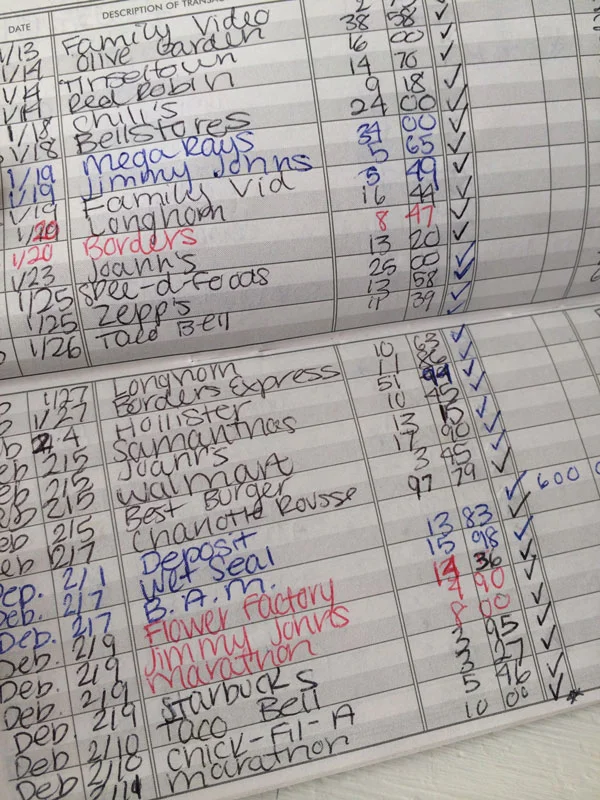 DATE DESCRIPTION OF TRANSA
1/13 Family Video
1/14 Olive Garden 38 58
1/14 Tinseltown 16 00
1/14 Red Robin 14
1/18 Chili's 9 18
1/18 Bellstores 24 00
1/19 Mega Rays 34 00
1/19 Jimmy Johns 5 65
1/19 Family Vid 5 49
1/20 Longhorn 16 44
1/20 Borders 8 47
1/23 Joann's 13 20
1/25 Spee-d-Foods 25 00
1/25 Zepp's 13 58
1/26 Taco Bell 11 39
1/27 Longhorn 10 63
1/27 Borders Express 11 86
2/4 Hollister 51 99
2/5 Samanthas 10 45
2/5 Joann's 13 15
2/5 Walmart 17 90
2/5 Best Burger 3 45
eb 2/7 Charlotte Rousse 97 79
Dep. 2/1 Deposit 600 0
Deb. 2/7 Wet Seal 13 83
Deb. 2/7 B.A.M. 15 98
Deb. 2/9 Flower Factory 14 36
Deb. 2/9 Jimmy Johns 4 90
Deb. 2/9 Marathon 8 00
Deb 2/9 Starbucks 3 95
Deb 2/10 Taco Bell 3 27
Deb Chick-Fil-A 5 46
Deb 2/11 Marathon 10 00